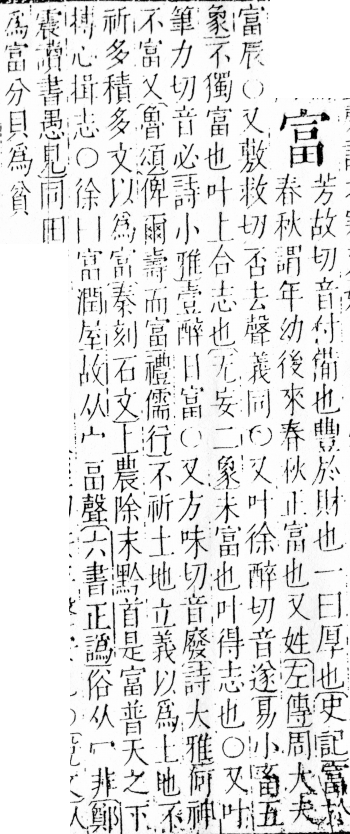 富
芳故切音付備也豐於財也一曰厚也史記富於
春秋謂年幼後來春秋正富也又姓左傳周大夫
富辰○又敷救切否去聲義同○又叶徐醉切音遂易小畜五
象不獨富也叶上合志也无妄二象未富也叶得志也○又叶
筆力切音必詩小雅壹醉日富○又方味切音廢詩大雅何神
不富又魯頌俾爾壽而富禮儒行不祈土地立義以爲土地不
祈多積多文以爲富秦刻石文上農除末黔首是富普天之下
摶心揖志○徐曰富潤屋故从宀畐聲六書正譌俗从冖非鄭
震讀書愚見同田
爲富分貝爲貧